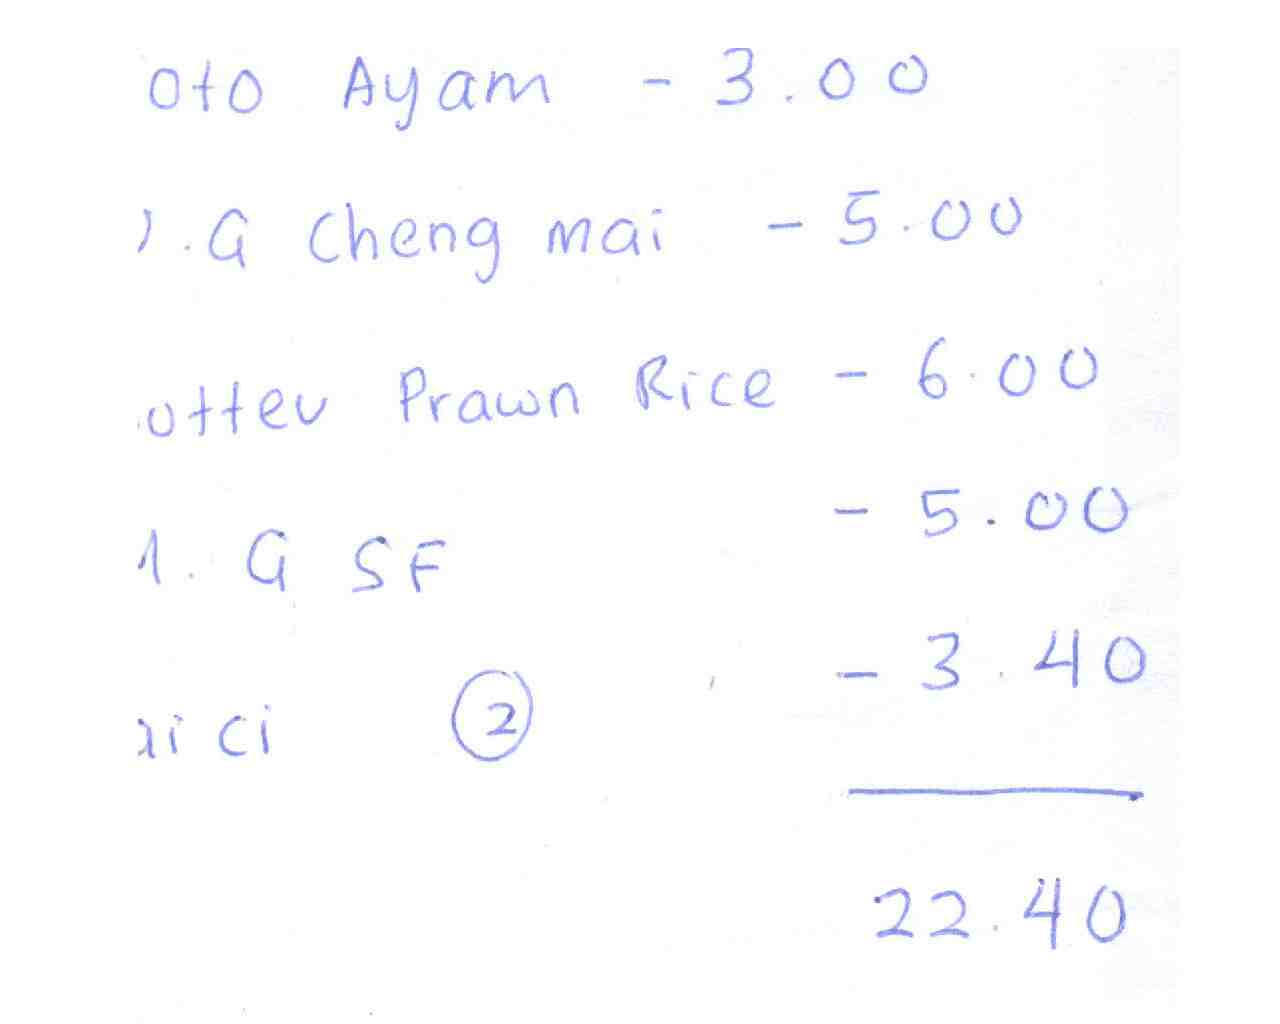 oto Ayam - 3.00
. G Cheng mai - 5.00
utter Prawn Rice - 6.00
. G SF - 5.00
ici 2 - 3.40
22.40